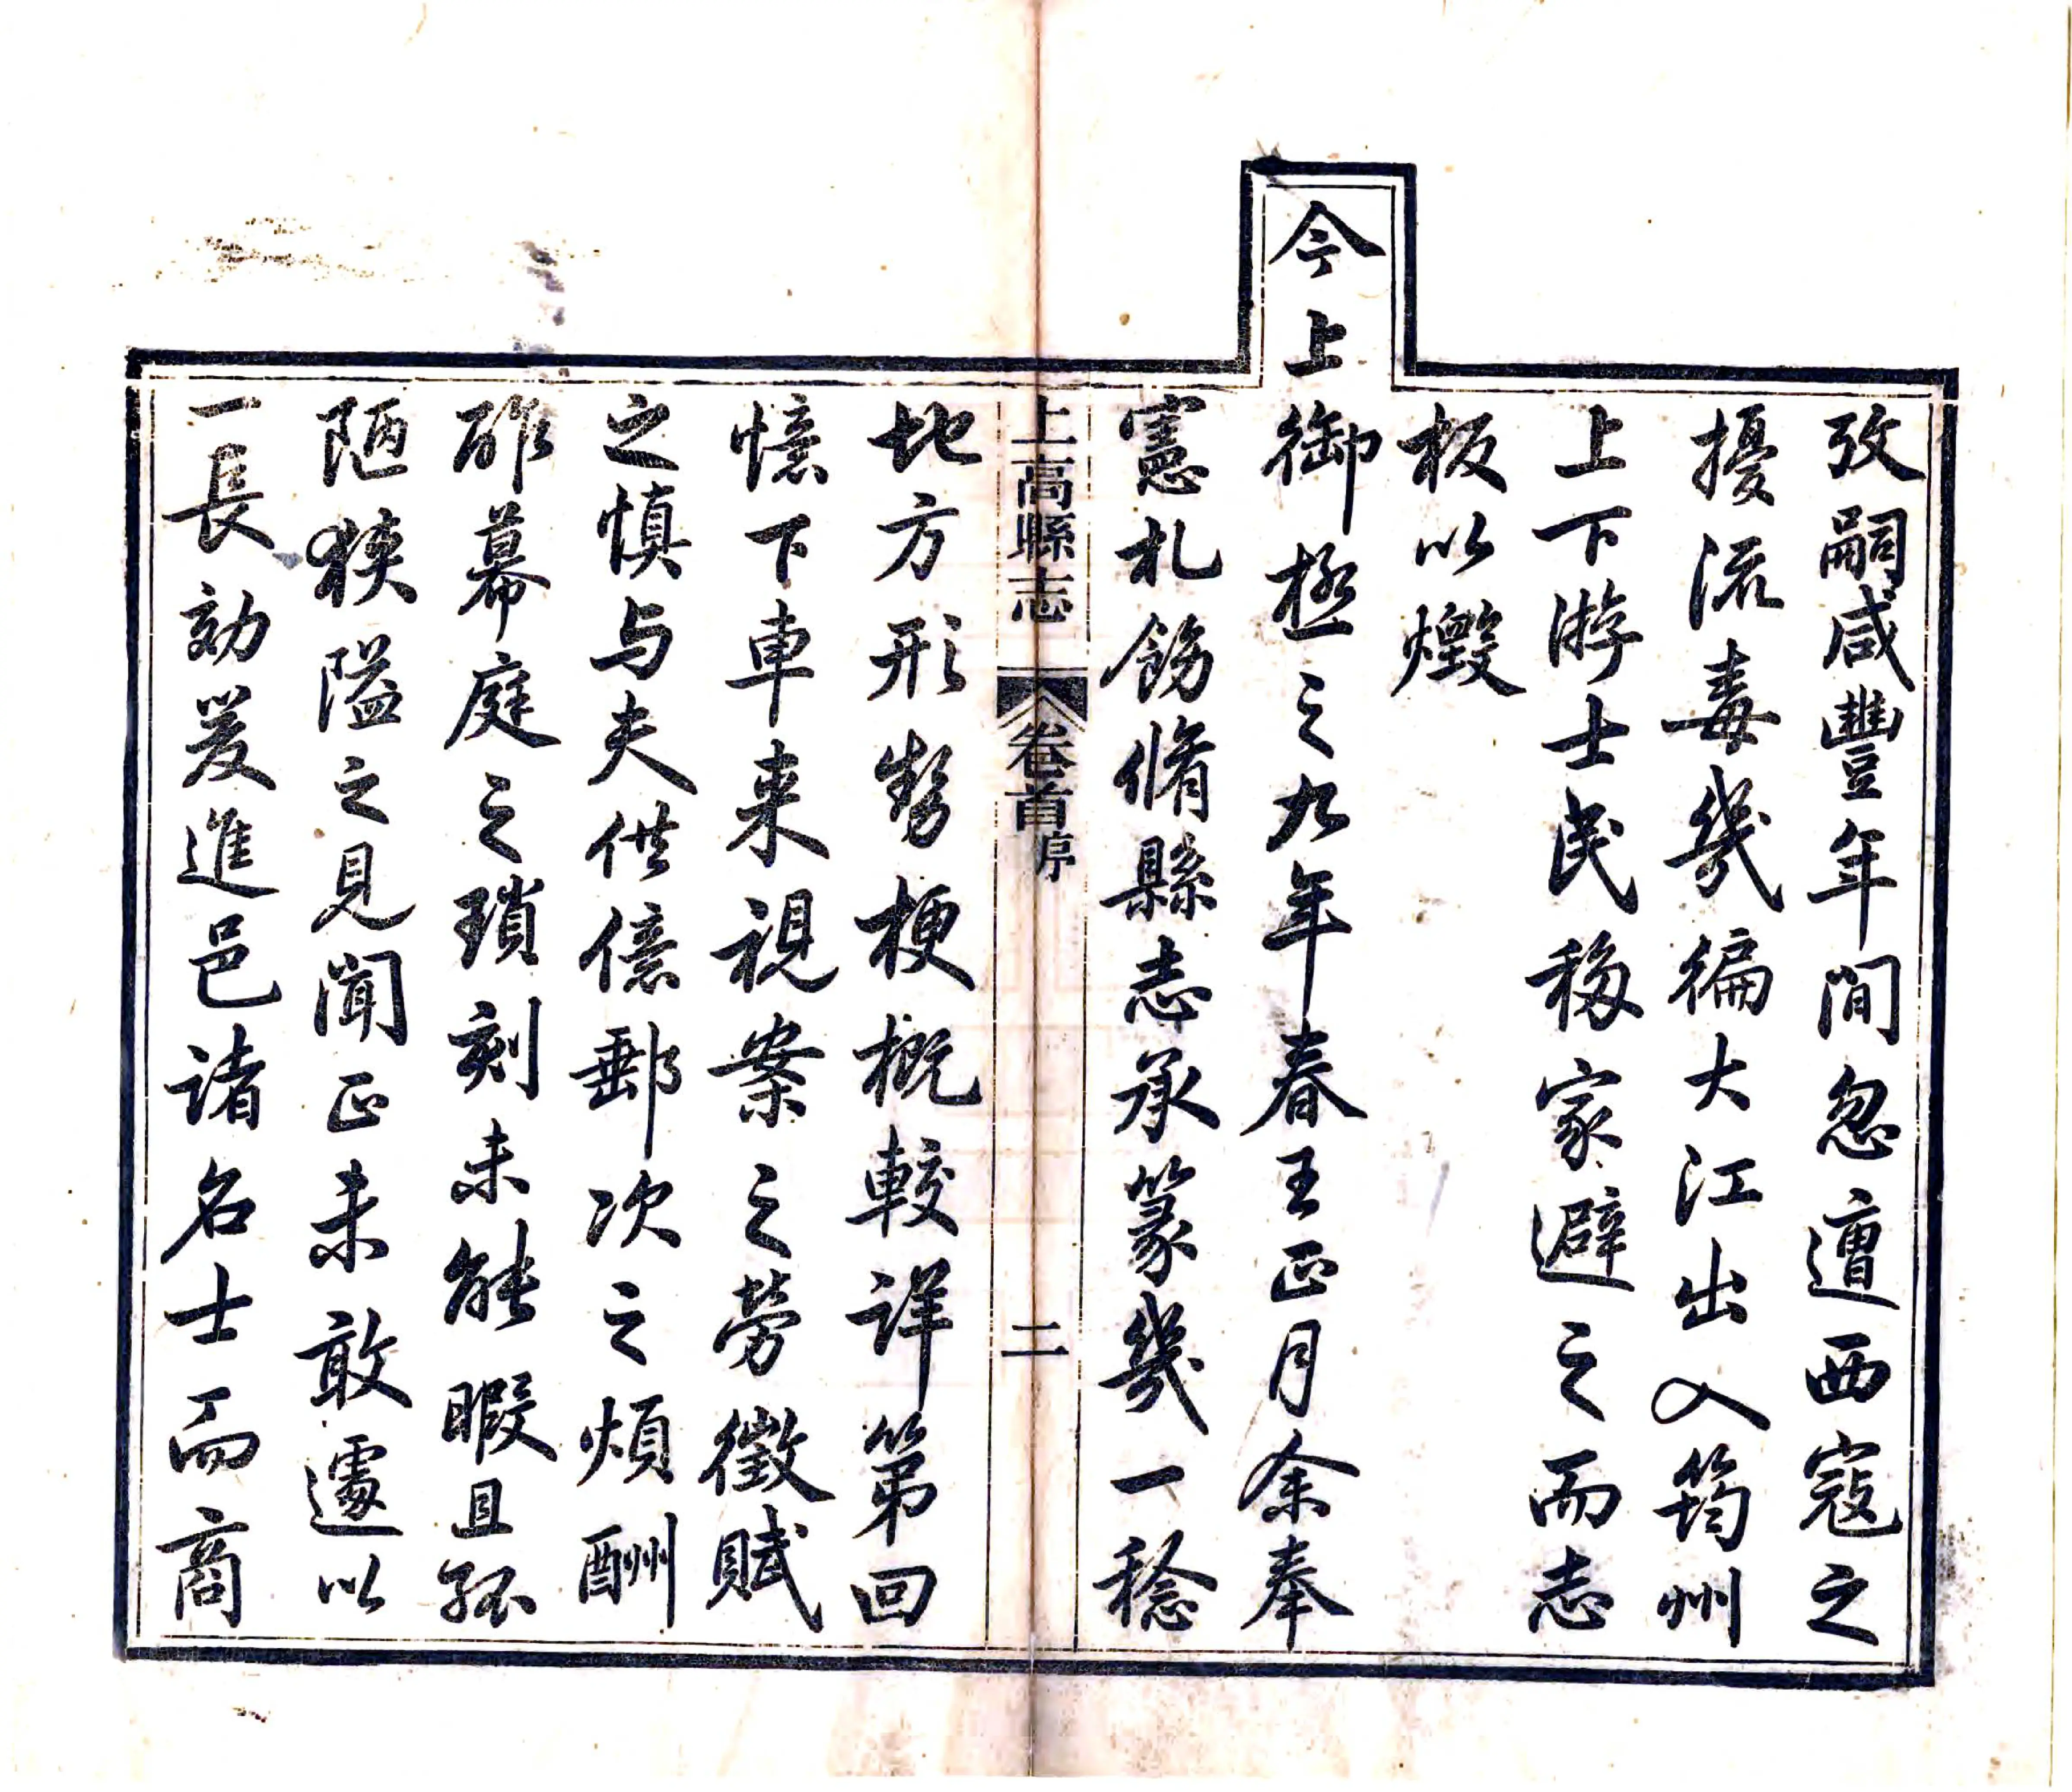 攷嗣咸豐年間忽遭西寇之
擾流毒幾徧大江出入筠州
上下游士民移家避之而志
板以燬
今上御極之九年春王正月余奉
憲札飭脩縣志承篆幾一稔
上高縣志 卷首序 二
地方形勢梗概較詳第回
憶下車来視案之勞徵賦
之慎与夫供億郵次之煩酬
酢幕庭之瑣刻未能暇且孤
陋狹隘之見聞正未敢遽以
一長効爰進邑诸名士而商